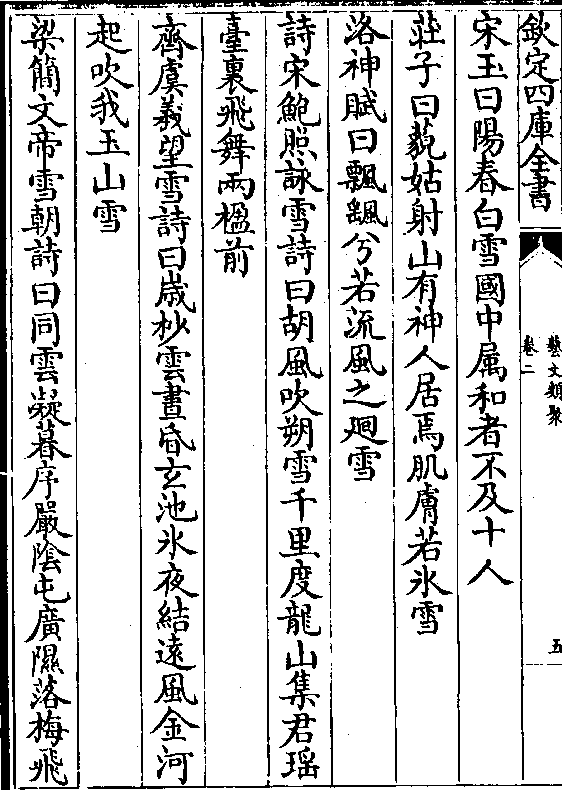 欽定四庫全書
藝文類聚
卷二
五
宋玉曰陽春白雪國中属和者不及十人
莊子曰藐姑射山有神人居焉肌膚若氷雪
洛神賦曰飄飖兮若流風之廻雪
詩宋鮑照詠雪詩曰胡風吹朔雪千里度龍山集君瑶
臺裏飛舞兩楹前
齊虞羲望雪詩曰歳杪雲晝昏玄池氷夜結逺風金河
起吹我玉山雪
梁簡文帝雪朝詩曰同雲凝暮序嚴陰屯廣隰落梅飛